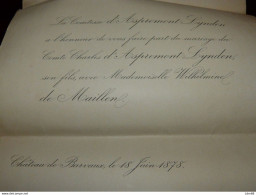 La Comtesse d'Aspremont Lynden
a l'honneur de vous faire part du mariage du
Comte Charles d'Aspremont Lynden,
son fils, avec Mademoiselle Wilhelmine
de Maillen.
Château de Barvaux, le 18 Juin 1878.